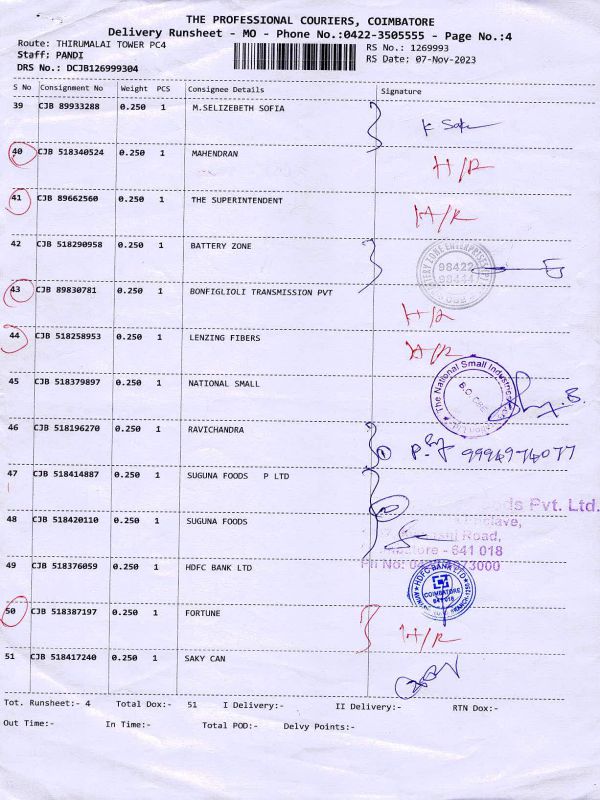 THE PROFESSIONAL COURIERS, COIMBATORE
Delivery Runsheet - MO - Phone No.:0422-3505555 - Page No.:4
Route: THIRUMALAI TOWER PC4 RS No.: 1269993
Staff: PANDI RS Date: 07-Nov-2023
DRS No.: DCJB126999304
S No Consignment No Weight PCS Consignee Details Signature
39 CJB 89933288 0.250 1 M.SELIZEBETH SOFIA
40 CJB 518340524 0.250 1 MAHENDRAN H/R
41 CJB 89662560 0.250 1 THE SUPERINTENDENT H/R
42 CJB 518290958 0.250 1 BATTERY ZONE
43 CJB 89830781 0.250 1 BONFIGLIOLI TRANSMISSION PVT H/R
44 CJB 518258953 0.250 1 LENZING FIBERS H/R
45 CJB 518379897 0.250 1 NATIONAL SMALL
The National Small Industries
46 CJB 518196270 0.250 1 RAVICHANDRA 1 9994974077
47 CJB 518414887 0.250 1 SUGUNA FOODS P LTD
ds Pvt. Ltd.
48 CJB 518420110 0.250 1 SUGUNA FOODS
Road,
641 018
49 CJB 518376059 0.250 1 HDFC BANK LTD
HDFC BANK LTD
COIMBATORE
641 018
50 CJB 518387197 0.250 1 FORTUNE H/R
51 CJB 518417240 0.250 1 SAKY CAN
Tot. Runsheet:- 4 Total Dox:- 51 I Delivery:- II Delivery:- RTN Dox:-
Out Time:- In Time:- Total POD:- Delvy Points:-